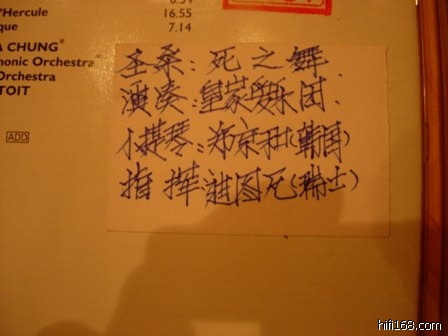 'Hercule 16.55
que 7.14
A CHUNG*
nonic Orchestra*
Orchestra
TOIT
ADD
圣桑：死之舞
演奏：皇家爱乐团.
小提琴：郑京和(韩国)
指挥 图(瑞士)
hifi168.com